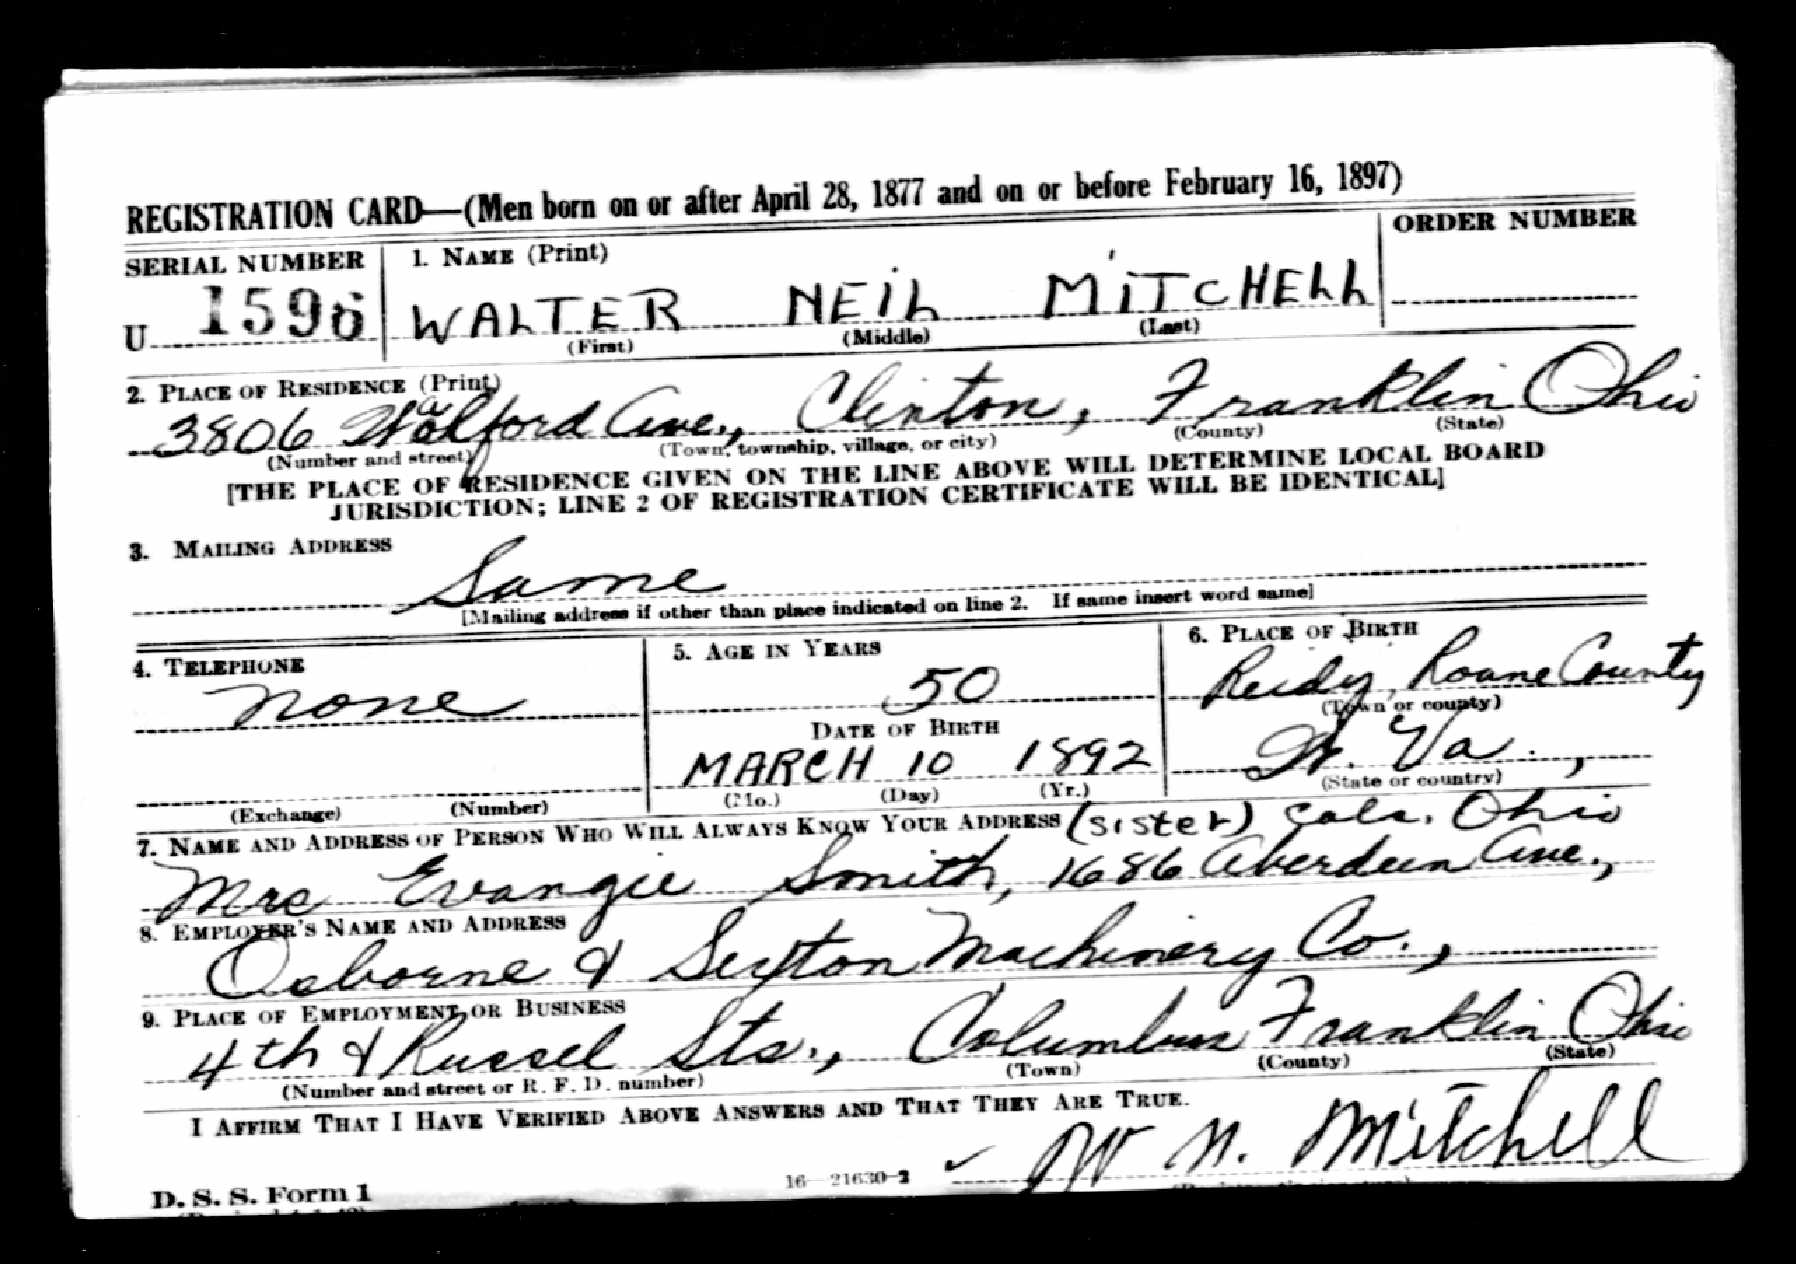 REGISTRATION CARD—(Men born on or after April 28, 1877 and on or before February 16, 1897)
SERIAL NUMBER
1. NAME (Print)
ORDER NUMBER
U 1596
WALTER NEIL MITCHELL
(First) (Middle) (Last)
2. PLACE OF RESIDENCE (Print)
3806 Walford Ave., Clinton, Franklin Ohio
(Number and street) (Town, township, village, or city) (County) (State)
[THE PLACE OF RESIDENCE GIVEN ON THE LINE ABOVE WILL DETERMINE LOCAL BOARD
JURISDICTION; LINE 2 OF REGISTRATION CERTIFICATE WILL BE IDENTICAL]
3. MAILING ADDRESS
Same
[Mailing address if other than place indicated on line 2. If same insert word same]
4. TELEPHONE
none
(Exchange) (Number)
5. AGE IN YEARS
50
DATE OF BIRTH
MARCH 10 1892
(Mo.) (Day) (Yr.)
6. PLACE OF BIRTH
Reidy, Roane County
(Town or county)
W. Va.,
(State or country)
7. NAME AND ADDRESS OF PERSON WHO WILL ALWAYS KNOW YOUR ADDRESS (sister) Cols. Ohio
Mrs Evangie Smith, 1686 Aberdeen Ave.,
8. EMPLOYER'S NAME AND ADDRESS
Osborne & Sexton Machinery Co.,
9. PLACE OF EMPLOYMENT OR BUSINESS
4th & Russel Sts., Columbus Franklin Ohio
(Number and street or R. F. D. number) (Town) (County) (State)
I AFFIRM THAT I HAVE VERIFIED ABOVE ANSWERS AND THAT THEY ARE TRUE.
W. N. Mitchell
D. S. S. Form 1
16—21630-2